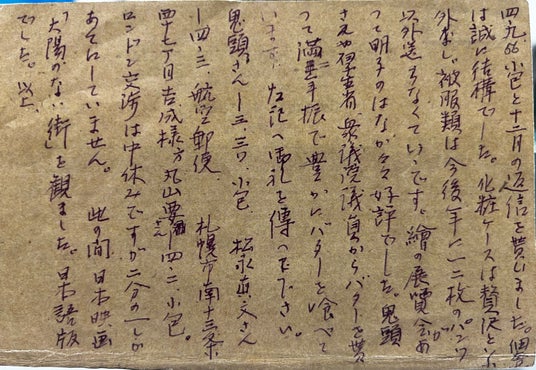 小包と十二月の返信を貰いました。
は誠に結構でした。化粧ケースは贅沢と
被服類は今後年に一二枚のパンツ
以外送らなくていいです。繪の展覧会があ
って明子のはなかなか好評でした。鬼頭
さん 衆議院議員からバターを貰
って 手振で豊かにバターを喰べて
います。左記へ御礼を傳へて下さい。
鬼頭さん―三、三〇 小包 松永正文さん
―四、三 航空郵便 札幌市南十三条
西十七丁目吉成様方丸山要さん―四、二 小包。
ロンドン交渉は中休みですが二分の一しか
あてにしていません。 此の間日本映画
「太陽のない街」を観ました。日本語版
でした。以上。